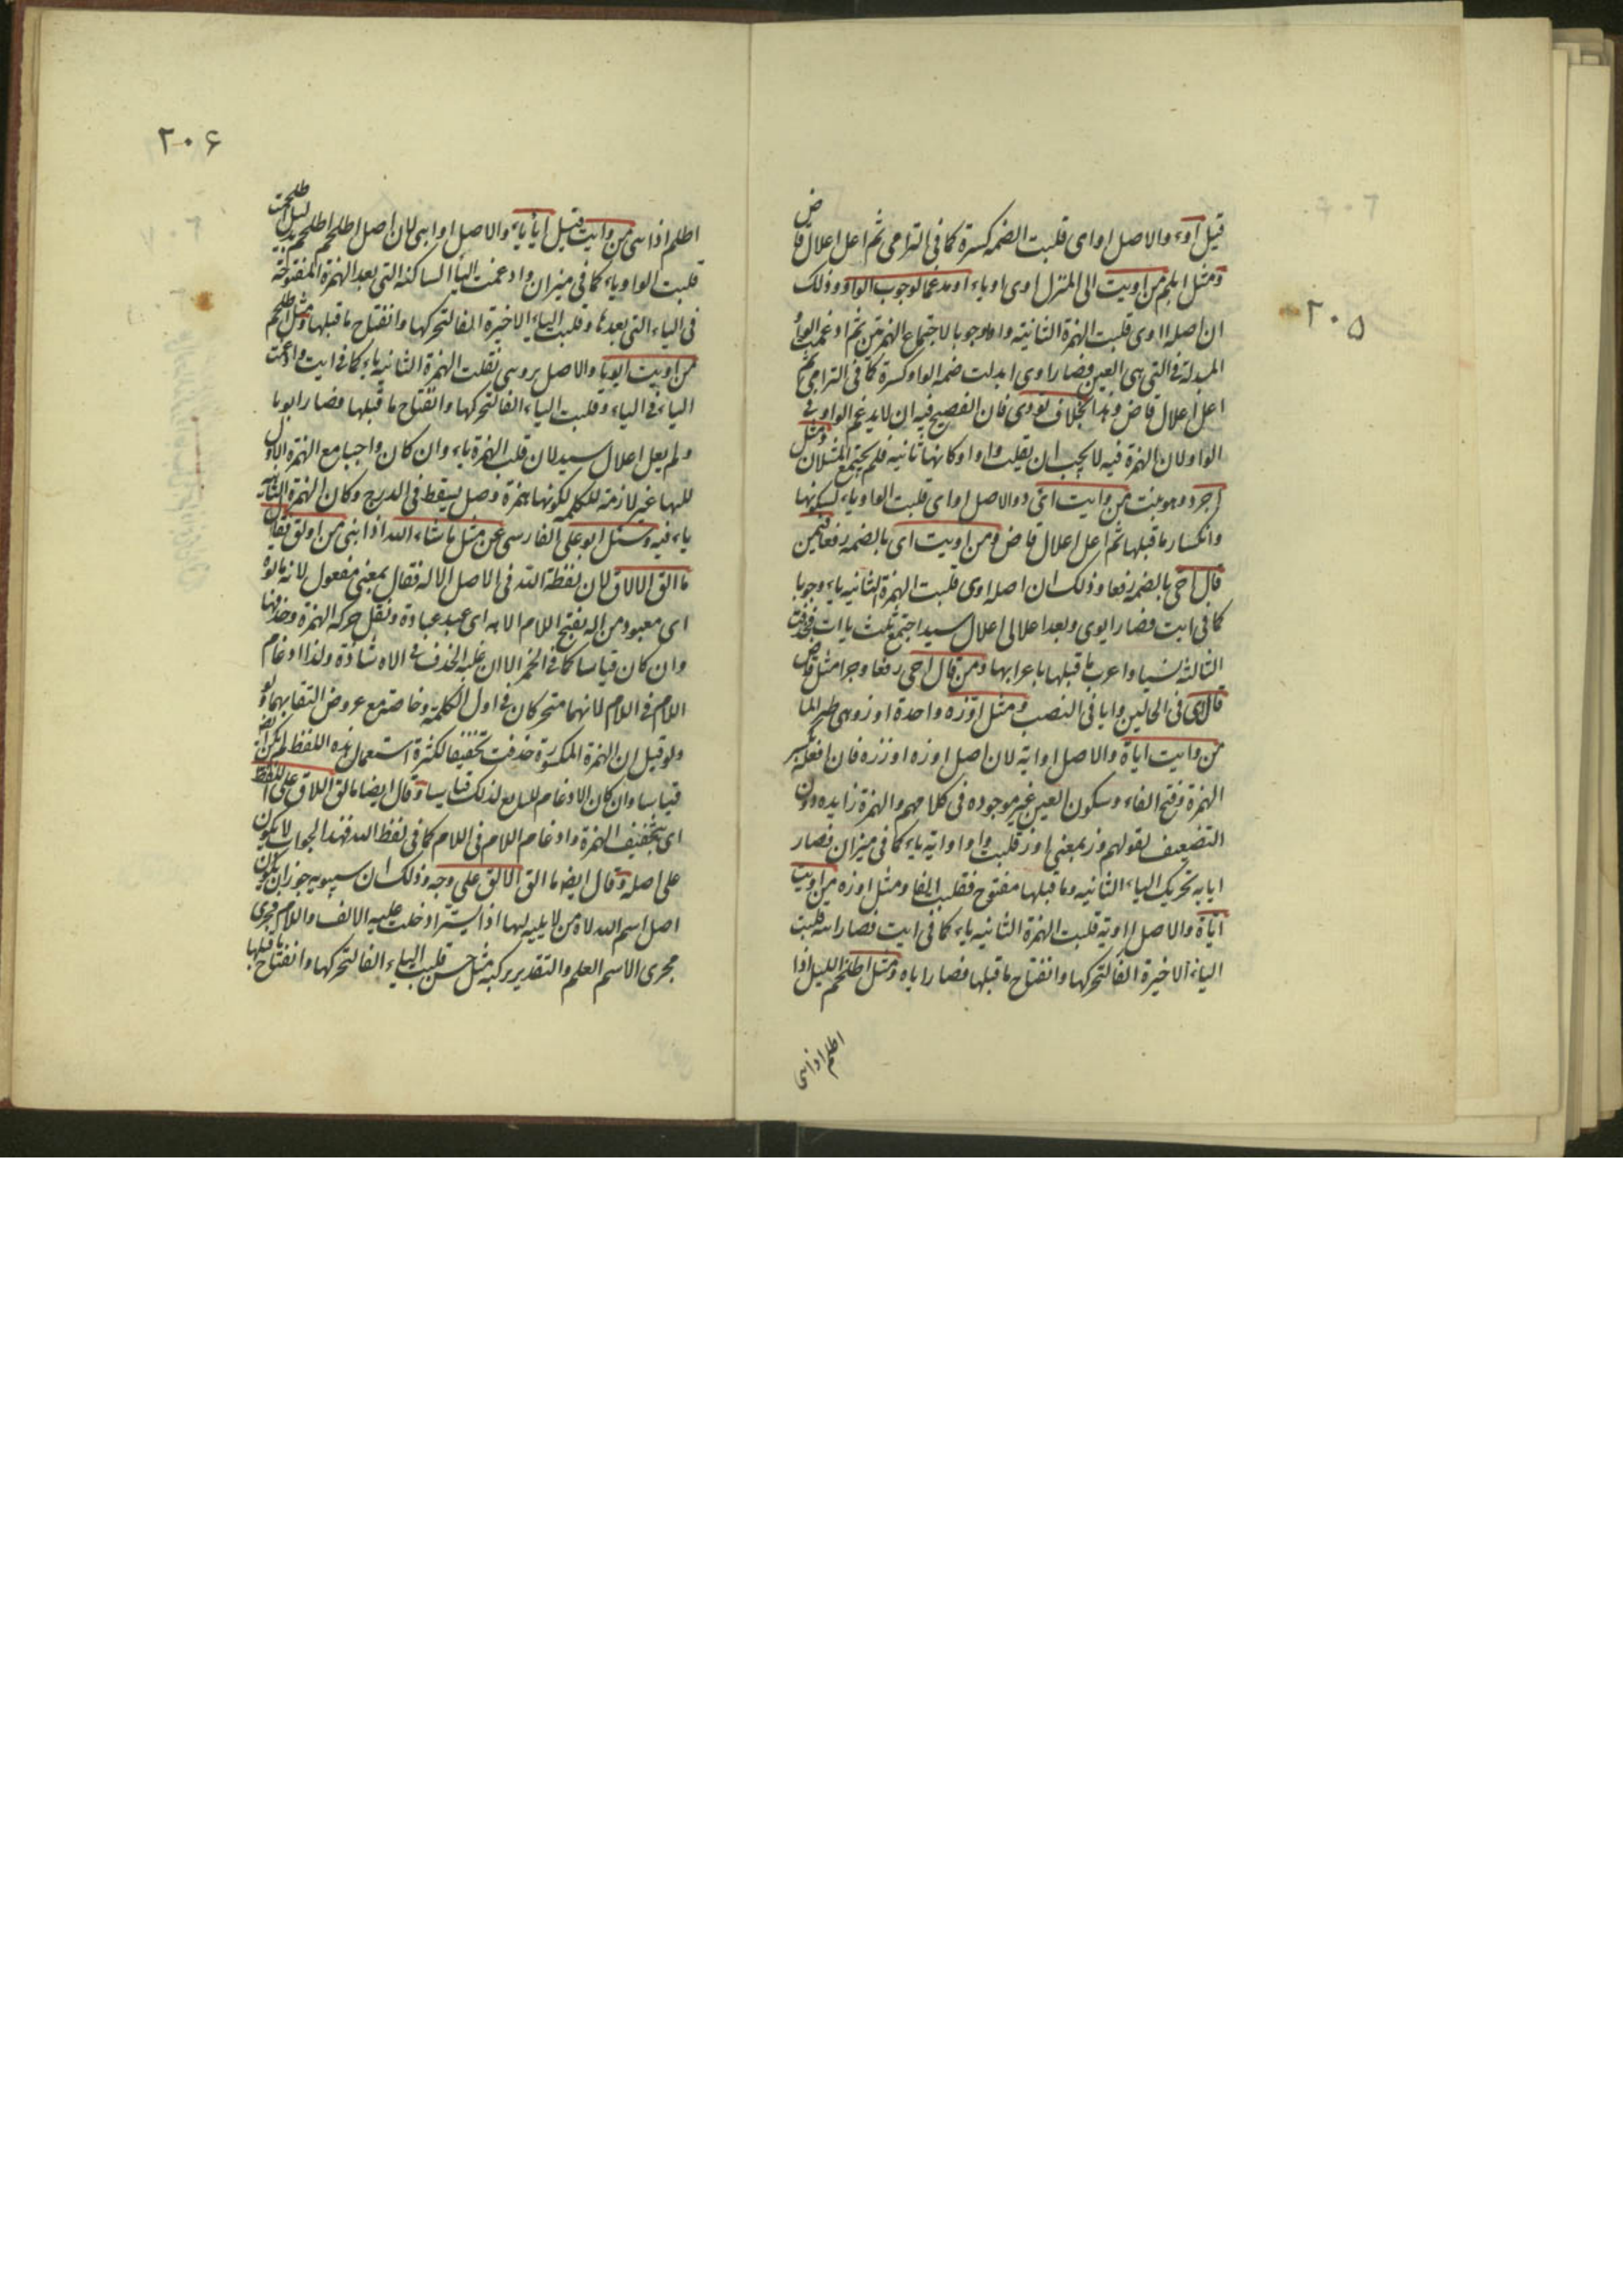 ٢٠٥
قيل اوء والاصل اواى قلبت الضمه كسرة كما فى الترامى ثم اعل اعلال قاض
ومثل ابلم من اويت الى المنزل اوى اوياء او مدغما لوجوب الواو وذلك
ان اصله ااوى قلبت الهمزة الثانية واوا وجوبا لاجتماع الهمزتين ثم ادغمت الواو
المبدلة فى التى هى العين فصار اوى ابدلت ضمه الواو كسرة كما فى الترامى ثم
اعل اعلال قاض وهذا بخلاف تووى فان الفصيح فيه ان لا يدغم الواو فى
الواو لان الهمزة فيه لا يجب ان يقلب واوا وكانها ثانيه فلم يجتمع المثلان ومثل
اجرد وهو نبت من وايت اى والاصل اواى قلبت الواو ياء لسكونها
وانكسار ما قبلها ثم اعل اعلال قاض ومن اويت اى بالضمه رفعا فيمن
قال احى بالضمه رفعا وذلك ان اصله اوى قلبت الهمزة الثانيه ياء وجوبا
كما فى ايت فصار ايوى وبعد اعلالى اعلال سيد اجتمع ثلث ياات فحذفت
الثالثة نسيا واعرب ما قبلها باعرابها ومن قال احى رفعا وجرا مثل قاض
قال اى فى الحالين وايا فى النصب ومثل اوزه واحدة اوز وهى طير الما
من وايت اياة والاصل اواية لان اصل اوزه اوززه فان افعلة بكسر
الهمزة وفتح الفاء وسكون العين غير موجوده فى كلامهم والهمزة زايده دون
التضعيف لقولهم وز بمعنى اوز قلبت واو اواية ياء كما فى ميزان فصار
ايايه تحريك الياء الثانيه وما قبلها مفتوح فقلب الفا ومثل اوزه من اويت
اياة والاصل ااوية قلبت الهمزة الثانيه ياء كما فى ايت فصار قلبت
الياء الاخيرة الفا لتحركها وانفتاح ما قبلها فصار اياه ومثل اطلخم الليل اذا
اظلم اذا بنى
٢٠۶
اظلم اذا بنى من وايت قيل اياياء والاصل اوايى لان اصل اطلخم اطلخمم بدليل اطلخممت
قلبت الواو ياء كما فى ميزان وادغمت اليا الساكنه التى بعد الهمزة المفتوحة
فى الياء التى بعدها وقلبت الياء الاخيرة الفا لتحركها وانفتاح ما قبلها ومثل اطلخم
من اويت ايويا والاصل نقلت الهمزة الثانيه ياء كما فى ايت وادغمت
الياء فى الياء وقلبت الياء الفا لتحركها وانفتاح ما قبلها فصار ايويا
ولم يعل اعلال سيد لان قلب الهمزة ياء وان كان واجبا مع الهمزة الاولى
لكنها غير لازمة للكلمة لكونها همزة وصل يسقط فى الدرج وكان الهمزة الثانية
ياء فيه وسئل ابو على الفارسى عن مثل ما شاء الله اذا بنى من اولق فقال
ما الق الالاق لان لفظة الله فى الاصل الاله فقال بمعنى مفعول لانه مالوه
اى معبود من اله بفتح اللام الاهه اى عبد عبادة ونقل حركه الهمزة وحذفها
وان كان قياسا كما فى الخمر الا ان غلبه الحذف فى الاله شاذة ولذا ادغام
اللام فى اللام لانهما متحركان فى اول الكلمة وخاصة مع عروض التقايهما ولو
ولو قيل ان الهمزة المكسورة حذفت تخفيفا لكثرة استعمال هذه اللفظ لم يكن ايضا
قياسا وان كان الادغام للسابع لذلك قياسا وقال ايضا ما الق اللاق على اللفظ
اى بتخفيف الهمزة وادغام اللام فى اللام كما فى لفظ الله فهذا الجواب لا يكون
على اصله وقال ايضا ما الق الالق على وجه وذلك ان سيبويه جوز ان يكون
اصل اسم الله لاه من لاه يليه ليها اذا تستر ادخلت عليه الالف واللام فجرى
مجرى الاسم العلم والتقدير ركبه مثل حسن قلبت الياء الفا لتحركها وانفتاح ما قبلها